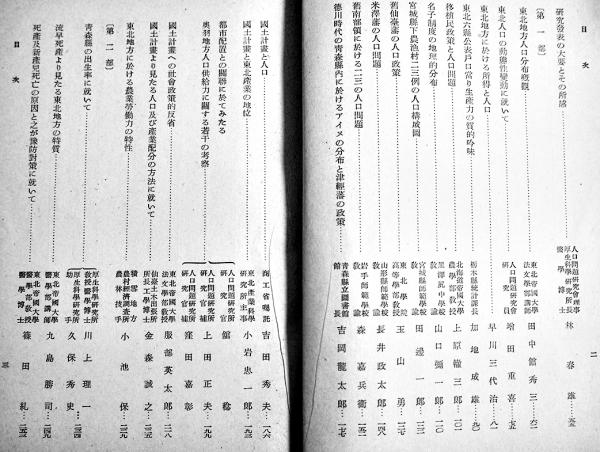 目次
研究發表の大要とその所感 人口問題研究會理事 厚生科學研究所長 醫學博士 林春雄
〔第一部〕
東北地方人口分布概觀 東北帝國大學 法文學部講師 田中館秀三
東北人口の動態性變動に就いて 人口問題研究會 研究員 增田重喜
東北地方に於ける所得と人口 早川三代治
東北六縣公表戸口當り生産力の質的吟味 栃木縣統計課長 加地成雄
移植民政策と人口問題 北海道帝國大學 農學部教授 上原轍三郎
名子制度の地理的分布 黑澤尻中學校 教諭 山口彌一郎
宮城縣下農漁村二三例の人口構成圖 宮城縣師範學校 教諭 田邊一郎
舊仙臺藩の人口政策 東北學院 高等學部教授 玉山勇
米澤藩の人口問題 山形縣師範學校 教諭 長井政太郎
舊南部領に於ける二三の人口問題 岩手師範學校 教諭 森嘉兵衞
德川時代の青森縣内に於けるアイヌの分布と津輕藩の政策 青森縣立圖書館長 吉岡龍太郎
二
國土計畫と人口 商工省囑託 吉田秀夫
國土計畫と東北産業の地位 東北産業科學研究所主事 小岩忠一郎
都市配置との關聯に於てみたる奥羽地方人口供給力に關する若干の考察 人口問題研究所 研究官 舘稔 人口問題研究所 研究官補 上田正夫 人口問題研究所 研究官補 窪田嘉彰
國土計畫への社會政策的反省 東北帝國大學 法文學部教授 服部英太郎
國土計畫より見たる人口及び産業配分の方法に就いて 仙臺土木出張所長 工學博士 金森誠之
東北地方に於ける農業勞働力の特性 積雪地方 農村經濟調査所 農林技手 小池保
〔第二部〕
青森縣の出生率に就いて 厚生科學研究所 教授 醫學博士 川上理一 厚生科學研究所 助手 久保秀史
流早死産より見たる東北地方の特質 東北帝國大學 醫學部講師 九島勝司
死産及新産兒死亡の原因と之が豫防對策に就いて 東北帝國大學 醫學部教授 醫學博士 篠田糺
目次
三